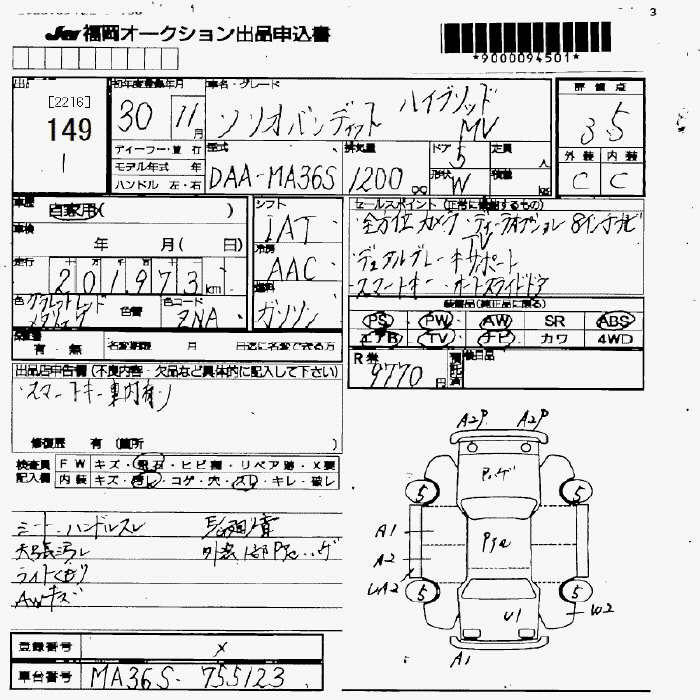 3
Ju 福岡オークション出品申込書
*9000094501*
[2216]
149
1
初年度登録年月
30 11月
車名・グレード
ソリオバンディット ハイブリッド
MV
評価点
3.5
外装 内装
C C
ディーラー・並行
モデル年式 年
ハンドル 左・右
型式
DAA-MA36S
排気量
1200 cc
ドア 5
形状 W
定員 人
積載 kg
車歴
自家用( )
車検
年 月( 日)
走行
201973 km
シフト
IAT
冷房
AAC
燃料
ガソリン
セールスポイント(正常に機能するもの)
全方位カメラ・ディーラオプション 8インチナビ
TV
デュアルブレーキサポート
スマートキー・オートスライドドア
色
メタリック
色替
色コード
ZNA
装備品(純正品に限る)
PS PW AW SR ABS
エアB TV ナビ カワ 4WD
有・無
名変期限 月 日迄に名変できる方
R券
9770円
預託済
後日品
出品店申告欄(不良内容・欠品など具体的に記入して下さい)
・スマートキー車内有り
修復歴 有(箇所 )
検査員 FW キズ・飛石・ヒビ割・リペア跡・X要
記入欄 内装 キズ・汚レ・コゲ・穴・スレ・キレ・破レ
シート・ハンドルスレ
天張汚レ
外装1部Pje・ゲ
ライトくもり
AWキズ
A2P A2P
P,ゲ
5 5
A1
A2
UA2
Pje
5 5
U1
W2
A1
登録番号 X
車台番号 MA36S-755123